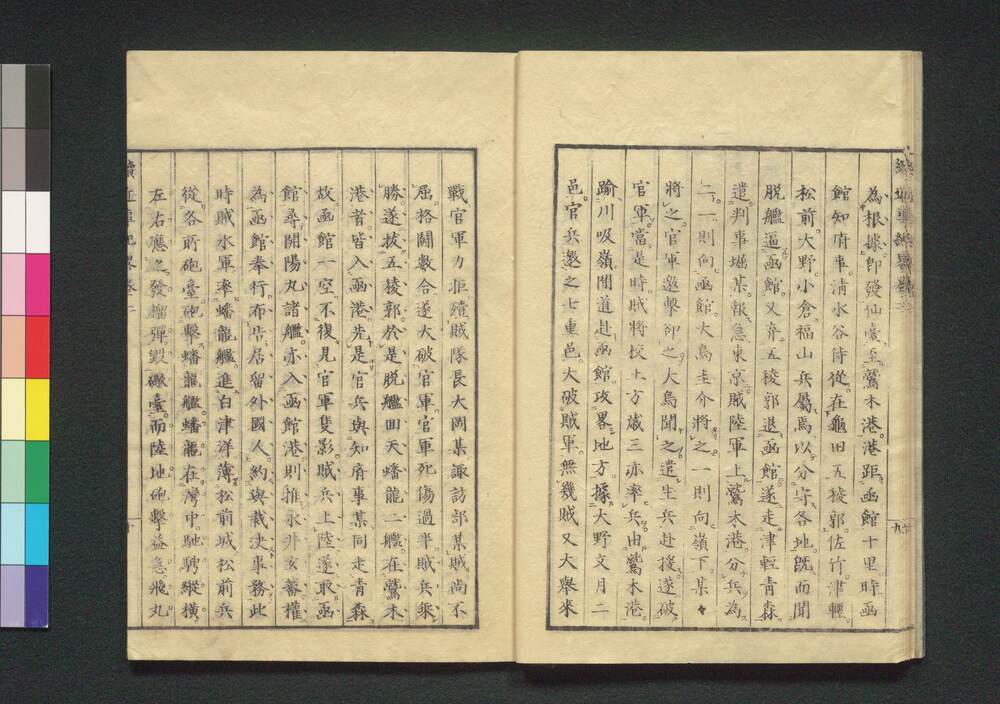 為根據。即發仙臺。至鷲木港。港距函館十里時函
館知府事。清水谷侍從。在龜田五稜郭。佐竹津輕。
松前。大野。小倉。福山兵屬焉以分守各地。既而聞
脫艦逼函館。又弃五稜郭退函館。遂走津輕青森。
遣判事堀某。報急東京。賊陸軍上鷲木港。分兵為
二。一則向函館。大鳥圭介將之。一則向嶺下。某々
將之。官軍邀擊卻之。大鳥聞之。遣生兵赴援。遂破
官軍。當是時賊將校土方歳三亦率兵。由鷲木港。
踰川吸嶺間道赴函館。攻畧地方。據大野文月二
邑。官兵邀之七重邑。大破賊軍。無幾賊又大舉來
戰官軍力拒殪賊隊長大岡某諏訪部某賊尚不
屈。挌鬪數合遂大破官軍。官軍死傷過半。賊兵乘
勝。遂拔五稜郭。於是脫艦回天蟠龍二艦。在鷲木
港者。皆入函港。先是官兵與知府事某同走青森
故函館一空。不復見官軍隻影。賊兵上陸。遂取函
館尋開陽丸諸艦。亦入函館港則推永井玄蕃權
為函館奉行。布告居留外國人。約與裁決事務此
時賊水軍。率蟠龍艦。進白津洋薄松前城。松前兵
從各所砲臺。砲擊蟠龍艦。蟠龍在灣中。馳騁縱橫。
左右應之。發榴彈毀礮臺。而陸地砲擊益急。飛丸